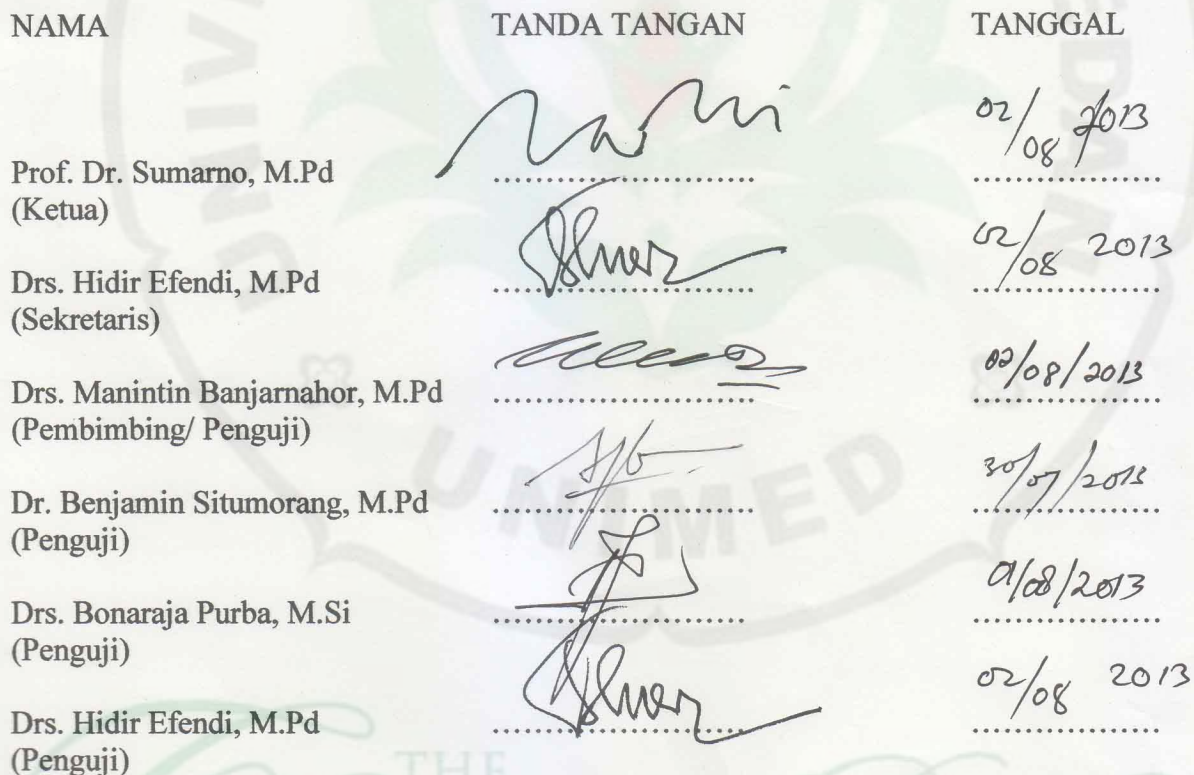 NAMA TANDA TANGAN TANGGAL
02/08 2013
Prof. Dr. Sumarno, M.Pd ........................... ...................
(Ketua)
02/08 2013
Drs. Hidir Efendi, M.Pd ........................... ...................
(Sekretaris)
02/08/2013
Drs. Manintin Banjarnahor, M.Pd ........................... ...................
(Pembimbing/ Penguji)
30/07/2013
Dr. Benjamin Situmorang, M.Pd ........................... ...................
(Penguji)
01/08/2013
Drs. Bonaraja Purba, M.Si .......................... ...................
(Penguji)
02/08 2013
Drs. Hidir Efendi, M.Pd ........................... ...................
(Penguji)
UNIMED
THE